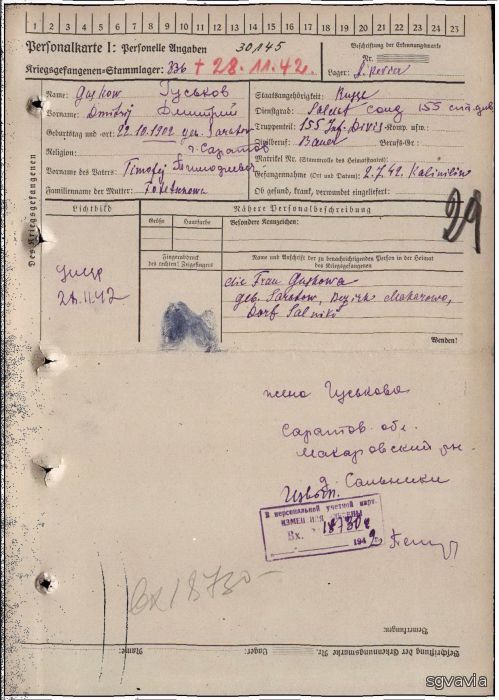 1 2 3 4 5 6 7 8 9 10 11 12 13 14 15 16 17 18 19 20 21 22 23 24 25
Personalkarte I: Personelle Angaben
30145
Beschriftung der Erkennungsmarke
Kriegsgefangenen-Stammlager: 336 + 28.11.42.
Nr.
Lager:
Des Kriegsgefangenen
Name: Guskow Гуськов
Vorname: Dmitrij Дмитрий
Geburtstag und -ort: 22.10.1902 geb. Saratow
г. Саратов
Religion:
Vorname des Vaters: Timofej Тимофеев
Familienname der Mutter:
Staatsangehörigkeit: Russe
Dienstgrad: Soldat Солд 155
Truppenteil: 155 Inf. Divis Komp. usw.:
Zivilberuf: Bauer Berufs-Gr.:
Matrikel Nr. (Stammrolle des Heimatstaates):
Gefangennahme (Ort und Datum): 2.7.42. Kalinilin
Ob gesund, krank, verwundet eingeliefert:
29
Lichtbild
Nähere Personalbeschreibung
Größe
Haarfarbe
Besondere Kennzeichen:
умер
28.11.42
Fingerabdruck
des rechten! Zeigefingers
Name und Anschrift der zu benachrichtigenden Person in der Heimat
des Kriegsgefangenen
die Frau Guskowa
geb. Saratow, Bezirk Makarowo,
Dorf Salniki
Wenden!
жена Гуськова
Саратов. обл.
Макаровский рн.
д. Сальники
В персональной учетной карт.
Вх. 18730с
194 2
вх18730-
Bemerkungen:
Beschriftung der Erkennungsmarke Nr. Lager: Name:
sgvavia